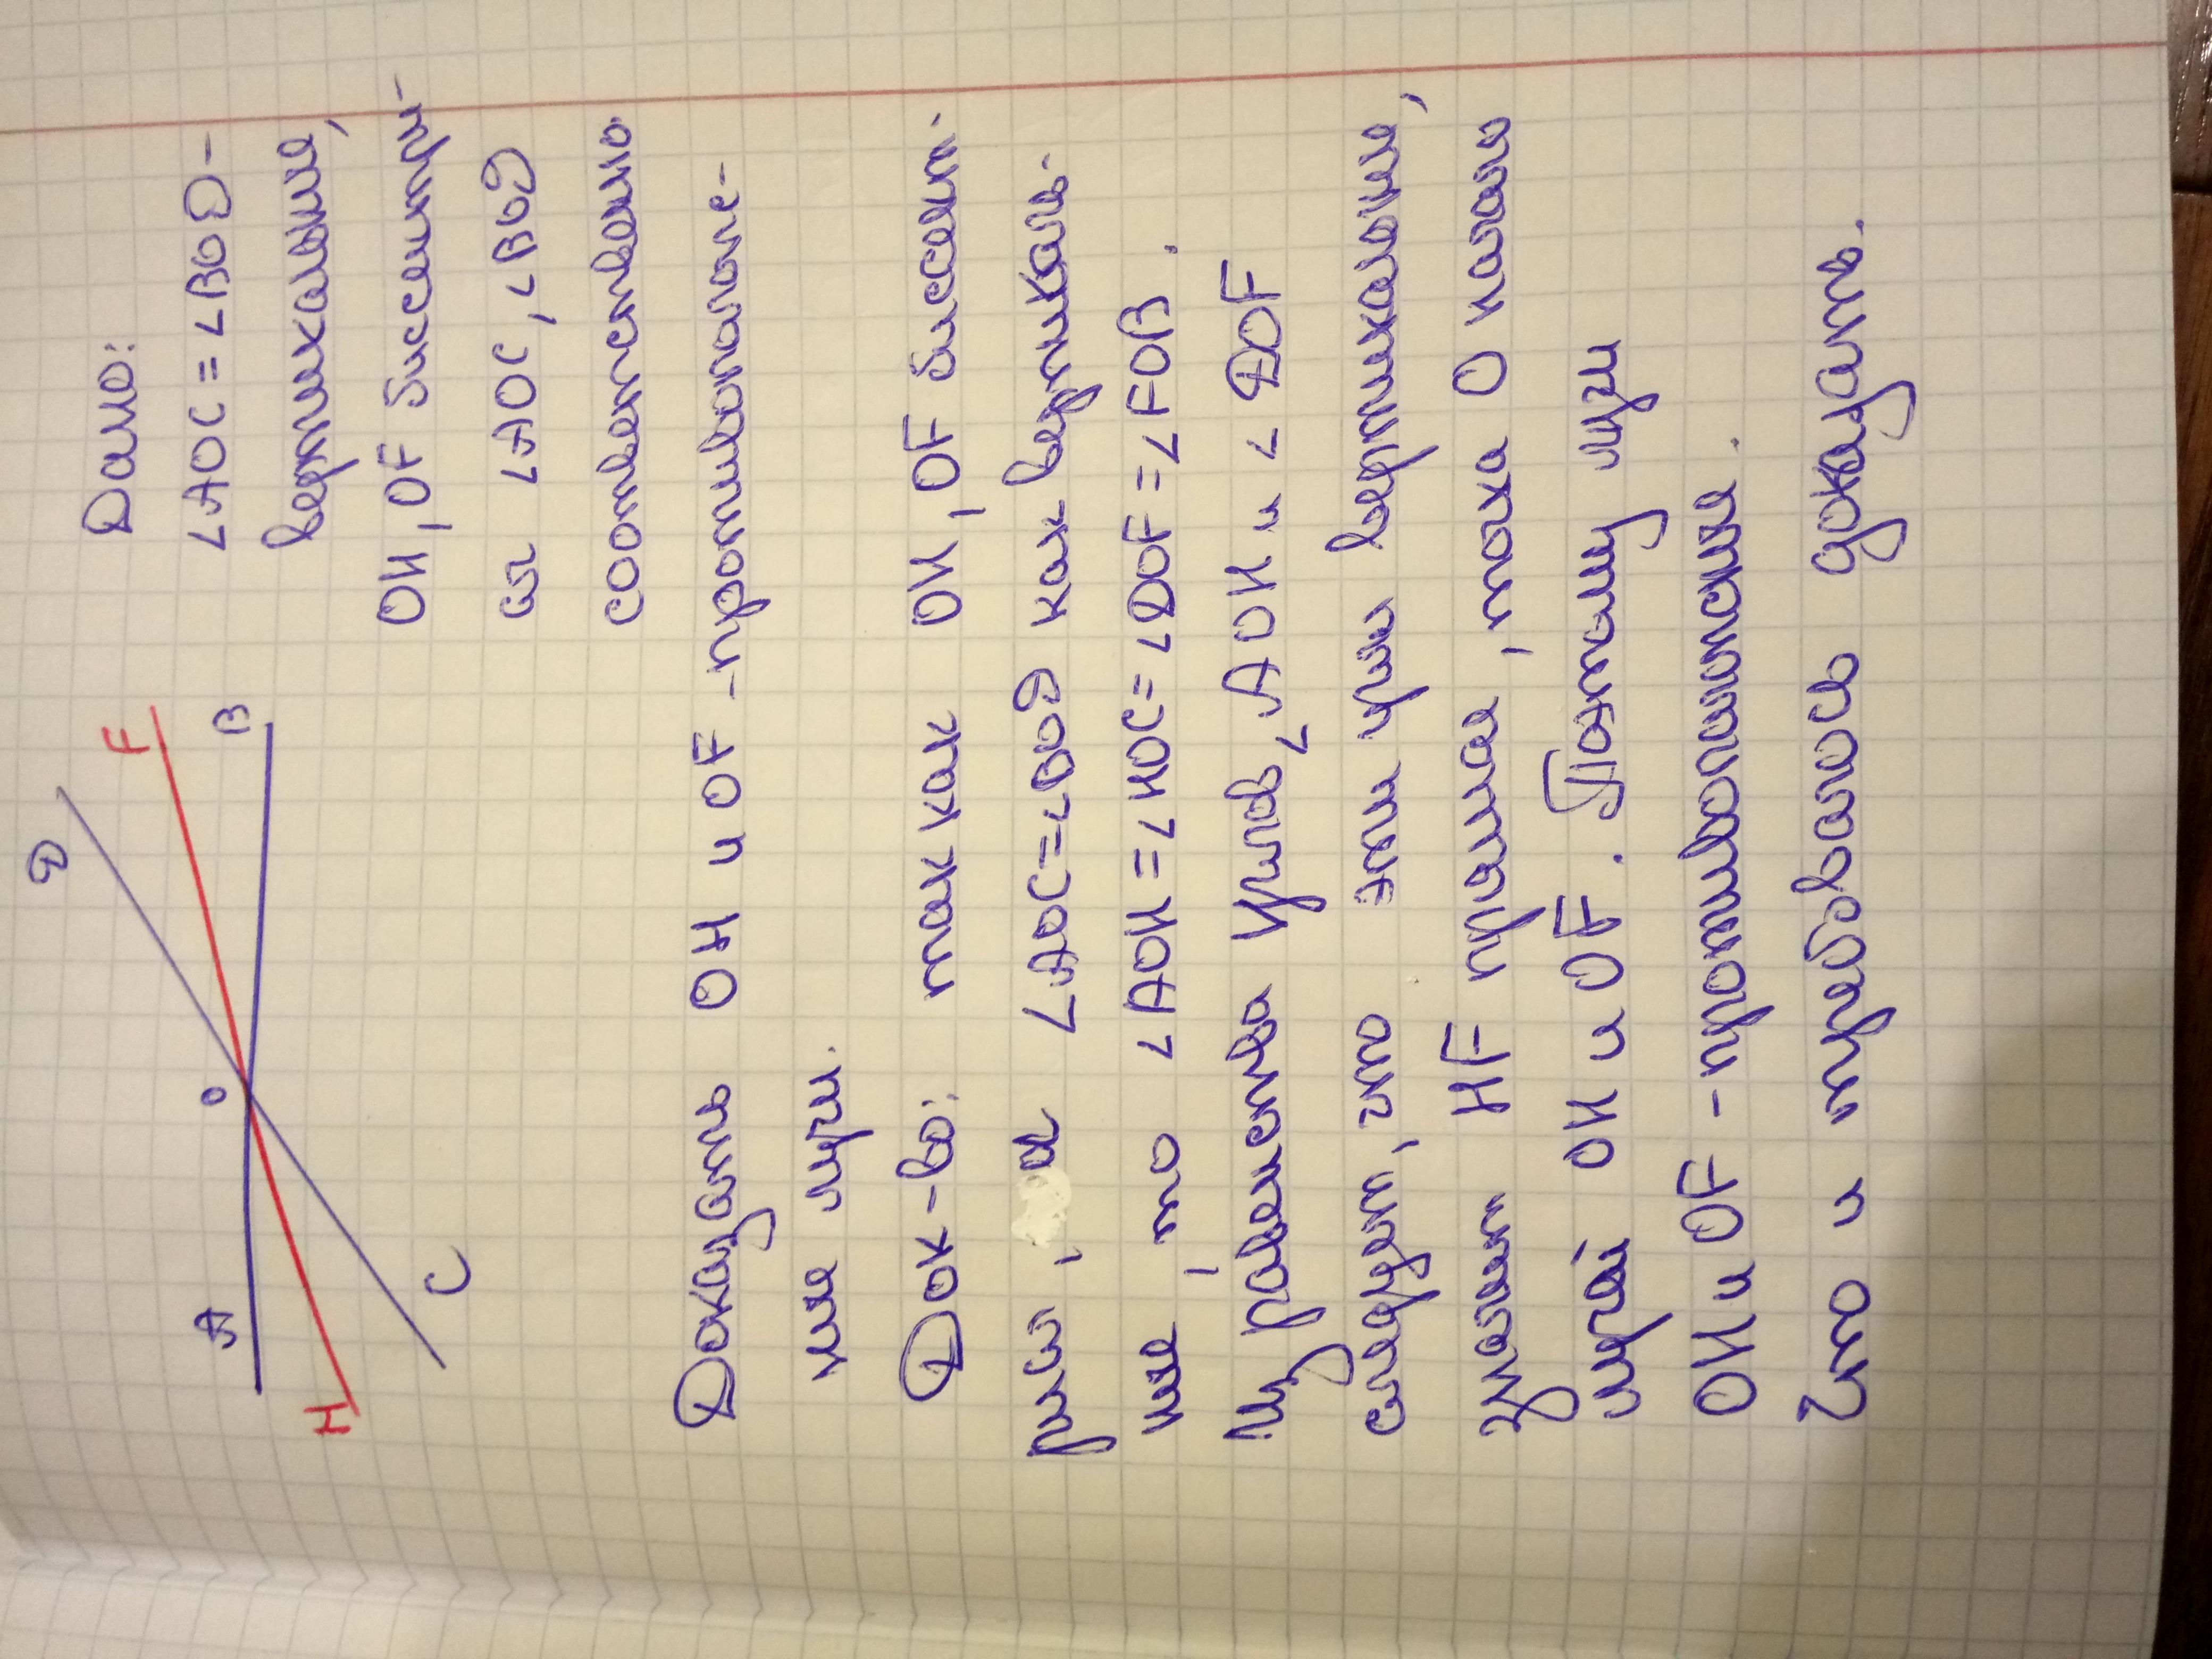 D
F
A
O
B
H
C
Дано:
∠AOC = ∠BOD -
вертикальные,
OH, OF биссектри-
сы ∠AOC, ∠BOD
соответственно
Доказать OH и OF - противоположе-
ные лучи.
Док-во: так как OH, OF биссект.
рисы, а ∠AOC=∠BOD как вертикаль-
ные, то ∠AOH=∠HOC=∠DOF=∠FOB.
Из равенства углов ∠AOH и ∠DOF
следует, что они вертикальные,
значит HF прямая, точка O начало
лучей OH и OF. Поэтому лучи
OH и OF - противоположные.
Что и требовалось доказать.